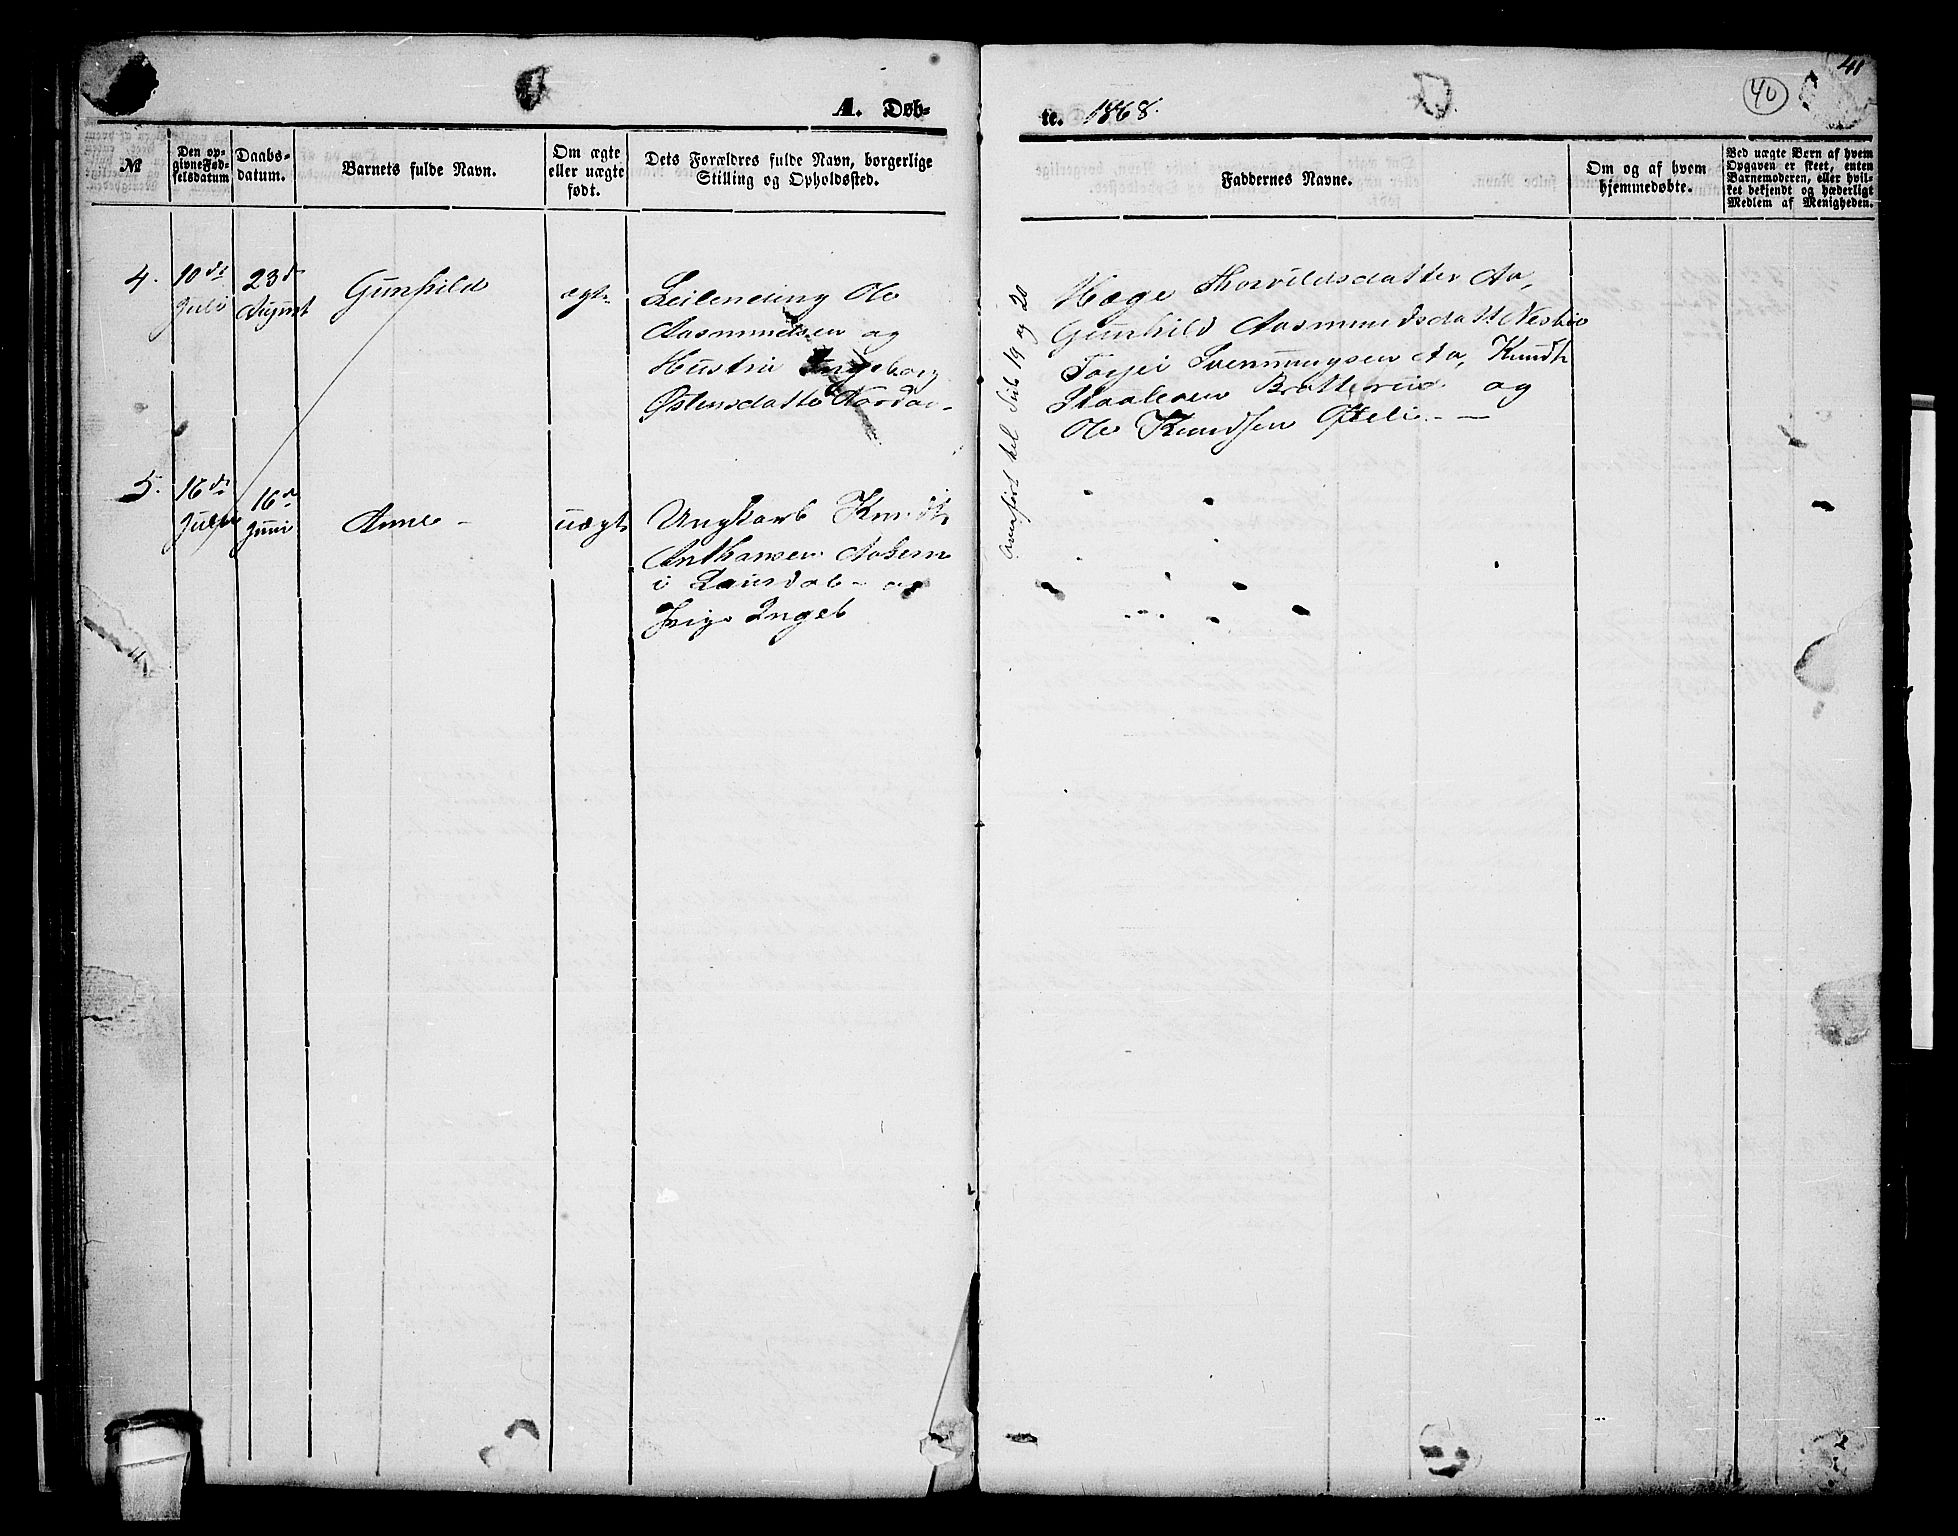 A. Døb-
te. 1868.
40
41
№
Den op-
givne Fød-
selsdatum
Daabs-
datum.
Barnets fulde Navn.
Om ægte
eller uægte
født.
Dets Forældres fulde Navn, borgerlige
Stilling og Opholdssted.
Faddernes Navne.
Om og af hvem
hjemmedøbte.
Ved uægte Børn af hvem
Opgaven er skeet, enten
Barnemoderen, eller hvil-
ket bekjendt og hæderligt
Medlem af Menigheden.
4.
10de
Juli
23d
August
Gunhild
ægte
Leilending Ole
Aasmundsen og
Hustru Ingeborg
Østensdatter
Hæge Thorvildsdatter Aa,
Gunhild Aasmundsdatt
Torjei Svennungsen Aa, Knudt
Staalesen Bratterud og
Ole Knudsen
5.
16de
16d
Juni
Anne
uægte
Ungkarl Knudt
i og
Pige Ingeb
Overført til Side 19 og 20